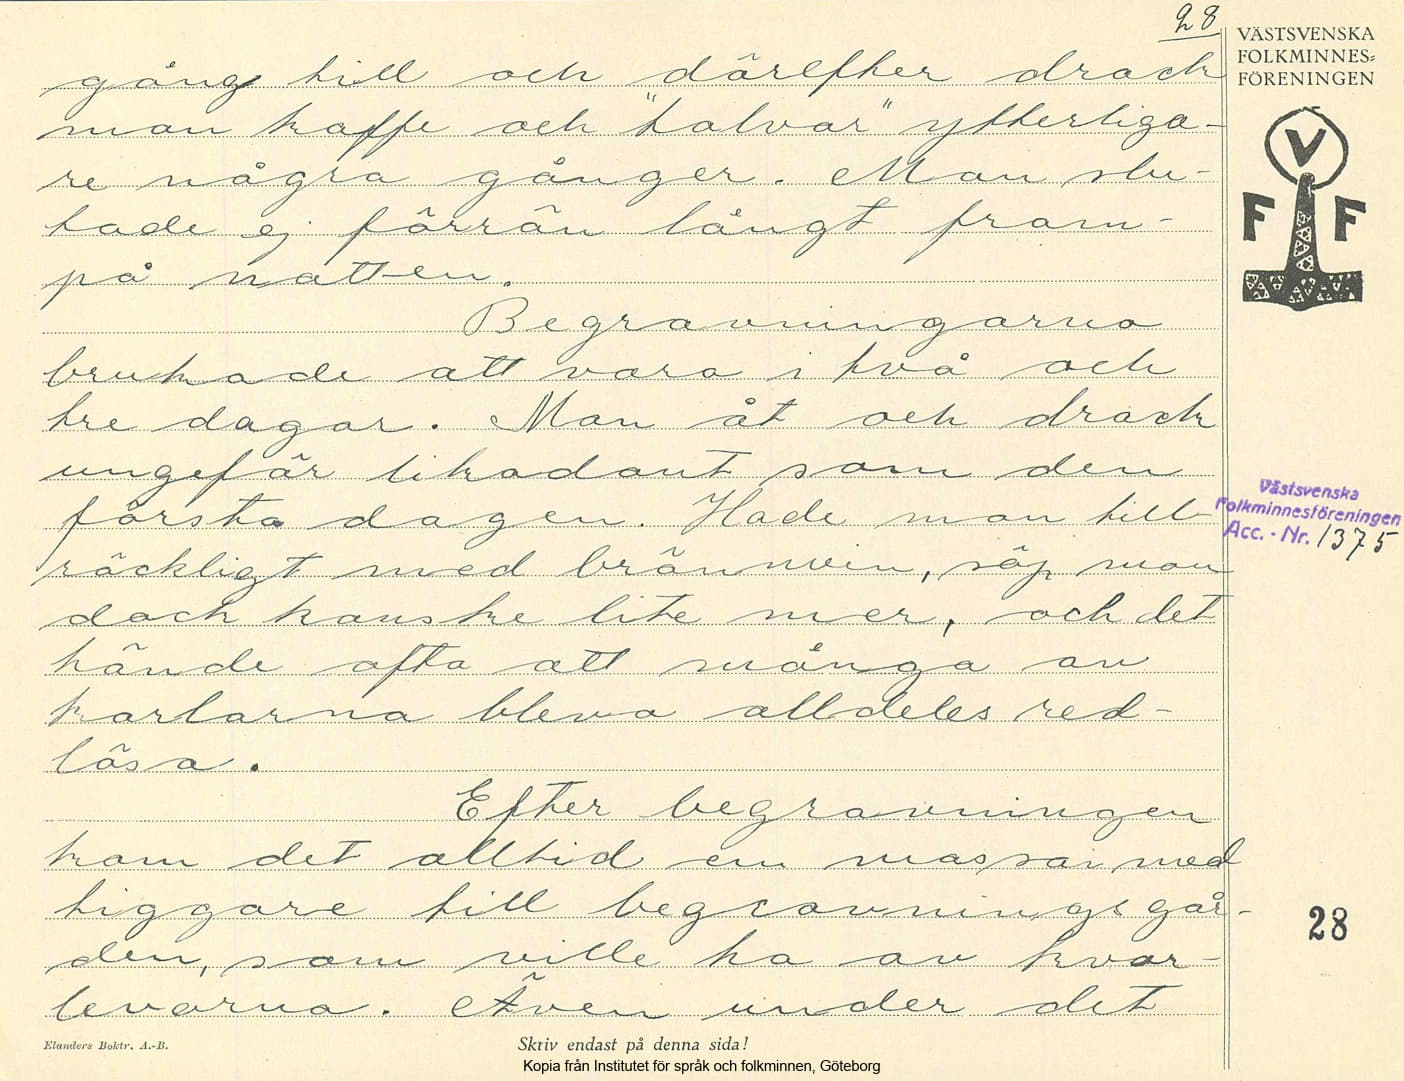 28
VÄSTSVENSKA
FOLKMINNES=
FÖRENINGEN
V
F F
gång till och därefter drack
man kaffe och "halvar" ytterliga-
re några gånger. Man slu-
tade ej förrän långt fram-
på natten.
Begravningarna
brukade att vara i två och
tre dagar. Man åt och drack
ungefär likadant som den
första dagen. Hade man till-
räckligt med brännvin, söp man
dock kanske lite mer, och det
hände ofta att många av
karlarna bleva alldeles red-
lösa.
Efter begravningen
kom det alltid en massa med
tiggare till begravningsgår-
den, som ville ha av kvar-
levorna. Även under det
Västsvenska
Folkminnesföreningen
Acc. - Nr. 1375
28
Elanders Boktr. A.-B.
Skriv endast på denna sida!
Kopia från Institutet för språk och folkminnen, Göteborg